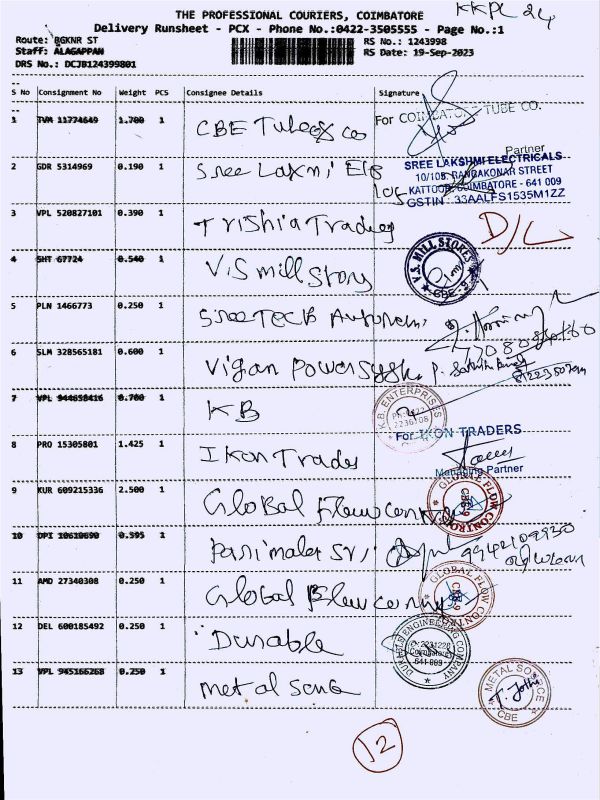 KKPL 24
THE PROFESSIONAL COURIERS, COIMBATORE
Delivery Runsheet - PCX - Phone No.:0422-3505555 - Page No.:1
Route: BGKNR ST
RS No.: 1243998
Staff: ALAGAPPAN
RS Date: 19-Sep-2023
DRS No.: DCJB124399801
S No Consignment No Weight PCS Consignee Details Signature
1 TVM 11774649 1.700 1 CBE Tubes co
For COIMBATORE TUBE CO.
Partner
2 GDR 5314969 0.190 1 Sree Laxmi Ele
SREE LAKSHMI ELECTRICALS
10/105, RANGAKONAR STREET
KATTOOR, COIMBATORE - 641 009
GSTIN : 33AALFS1535M1ZZ
3 VPL 520827101 0.390 1 Trishia Trading D/L
4 SHT 67724 0.540 1 V.S mill Story
V.S. MILL STORES
CBE-9
5 PLN 1466773 0.250 1 Sree Tech
6 SLM 328565181 0.600 1 Vigan Power
7 VPL 944658416 0.700 1 KB
K.B. ENTERPRISES
8 PRO 15305801 1.425 1 Ikon Trades
For IKON TRADERS
Managing Partner
9 KUR 609215336 2.500 1 Global Flow control
GLOBAL FLOW CONTROLS
CBE-9
10 OPI 10610690 0.395 1 Parimala Sri 9942109930
11 AMD 27340308 0.250 1 Global Flow
GLOBAL FLOW CONTROLS
CBE-9
12 DEL 600185492 0.250 1 Durable
ENGINEERING COMPANY
641 009
13 VPL 945166268 0.250 1 metal Sorce
METAL SOURCE
T. Jothi
CBE
12